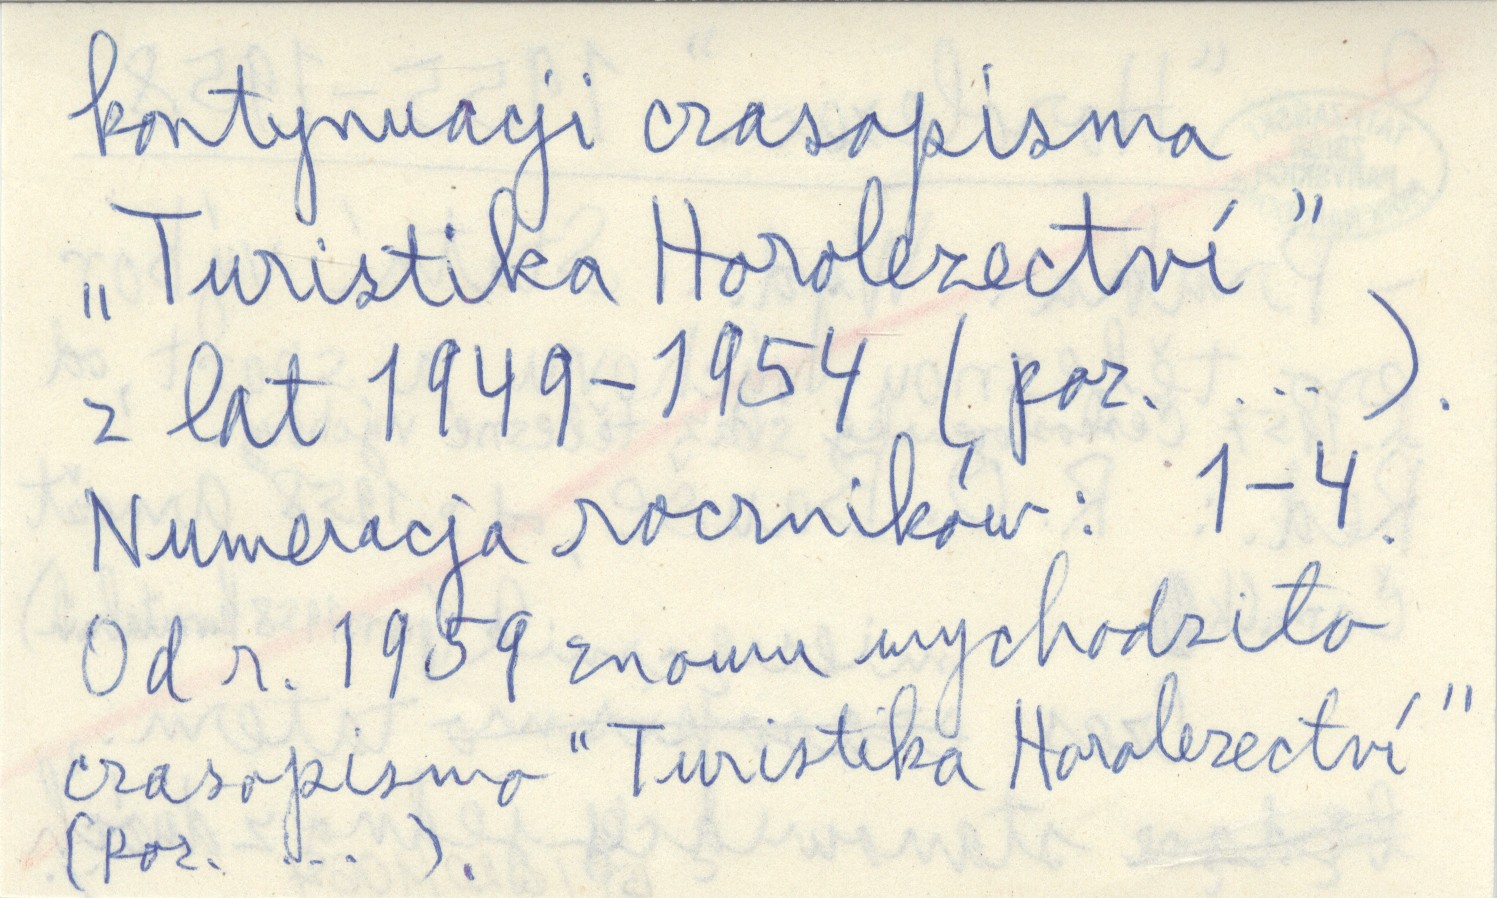 kontynuacji czasopisma
„Turistika Horolezectví”
z lat 1949-1954 (por. ... ).
Numeracja roczników: 1-4.
Od r. 1959 znowu wychodziło
czasopismo "Turistika Horolezectví"
(por. ... ).